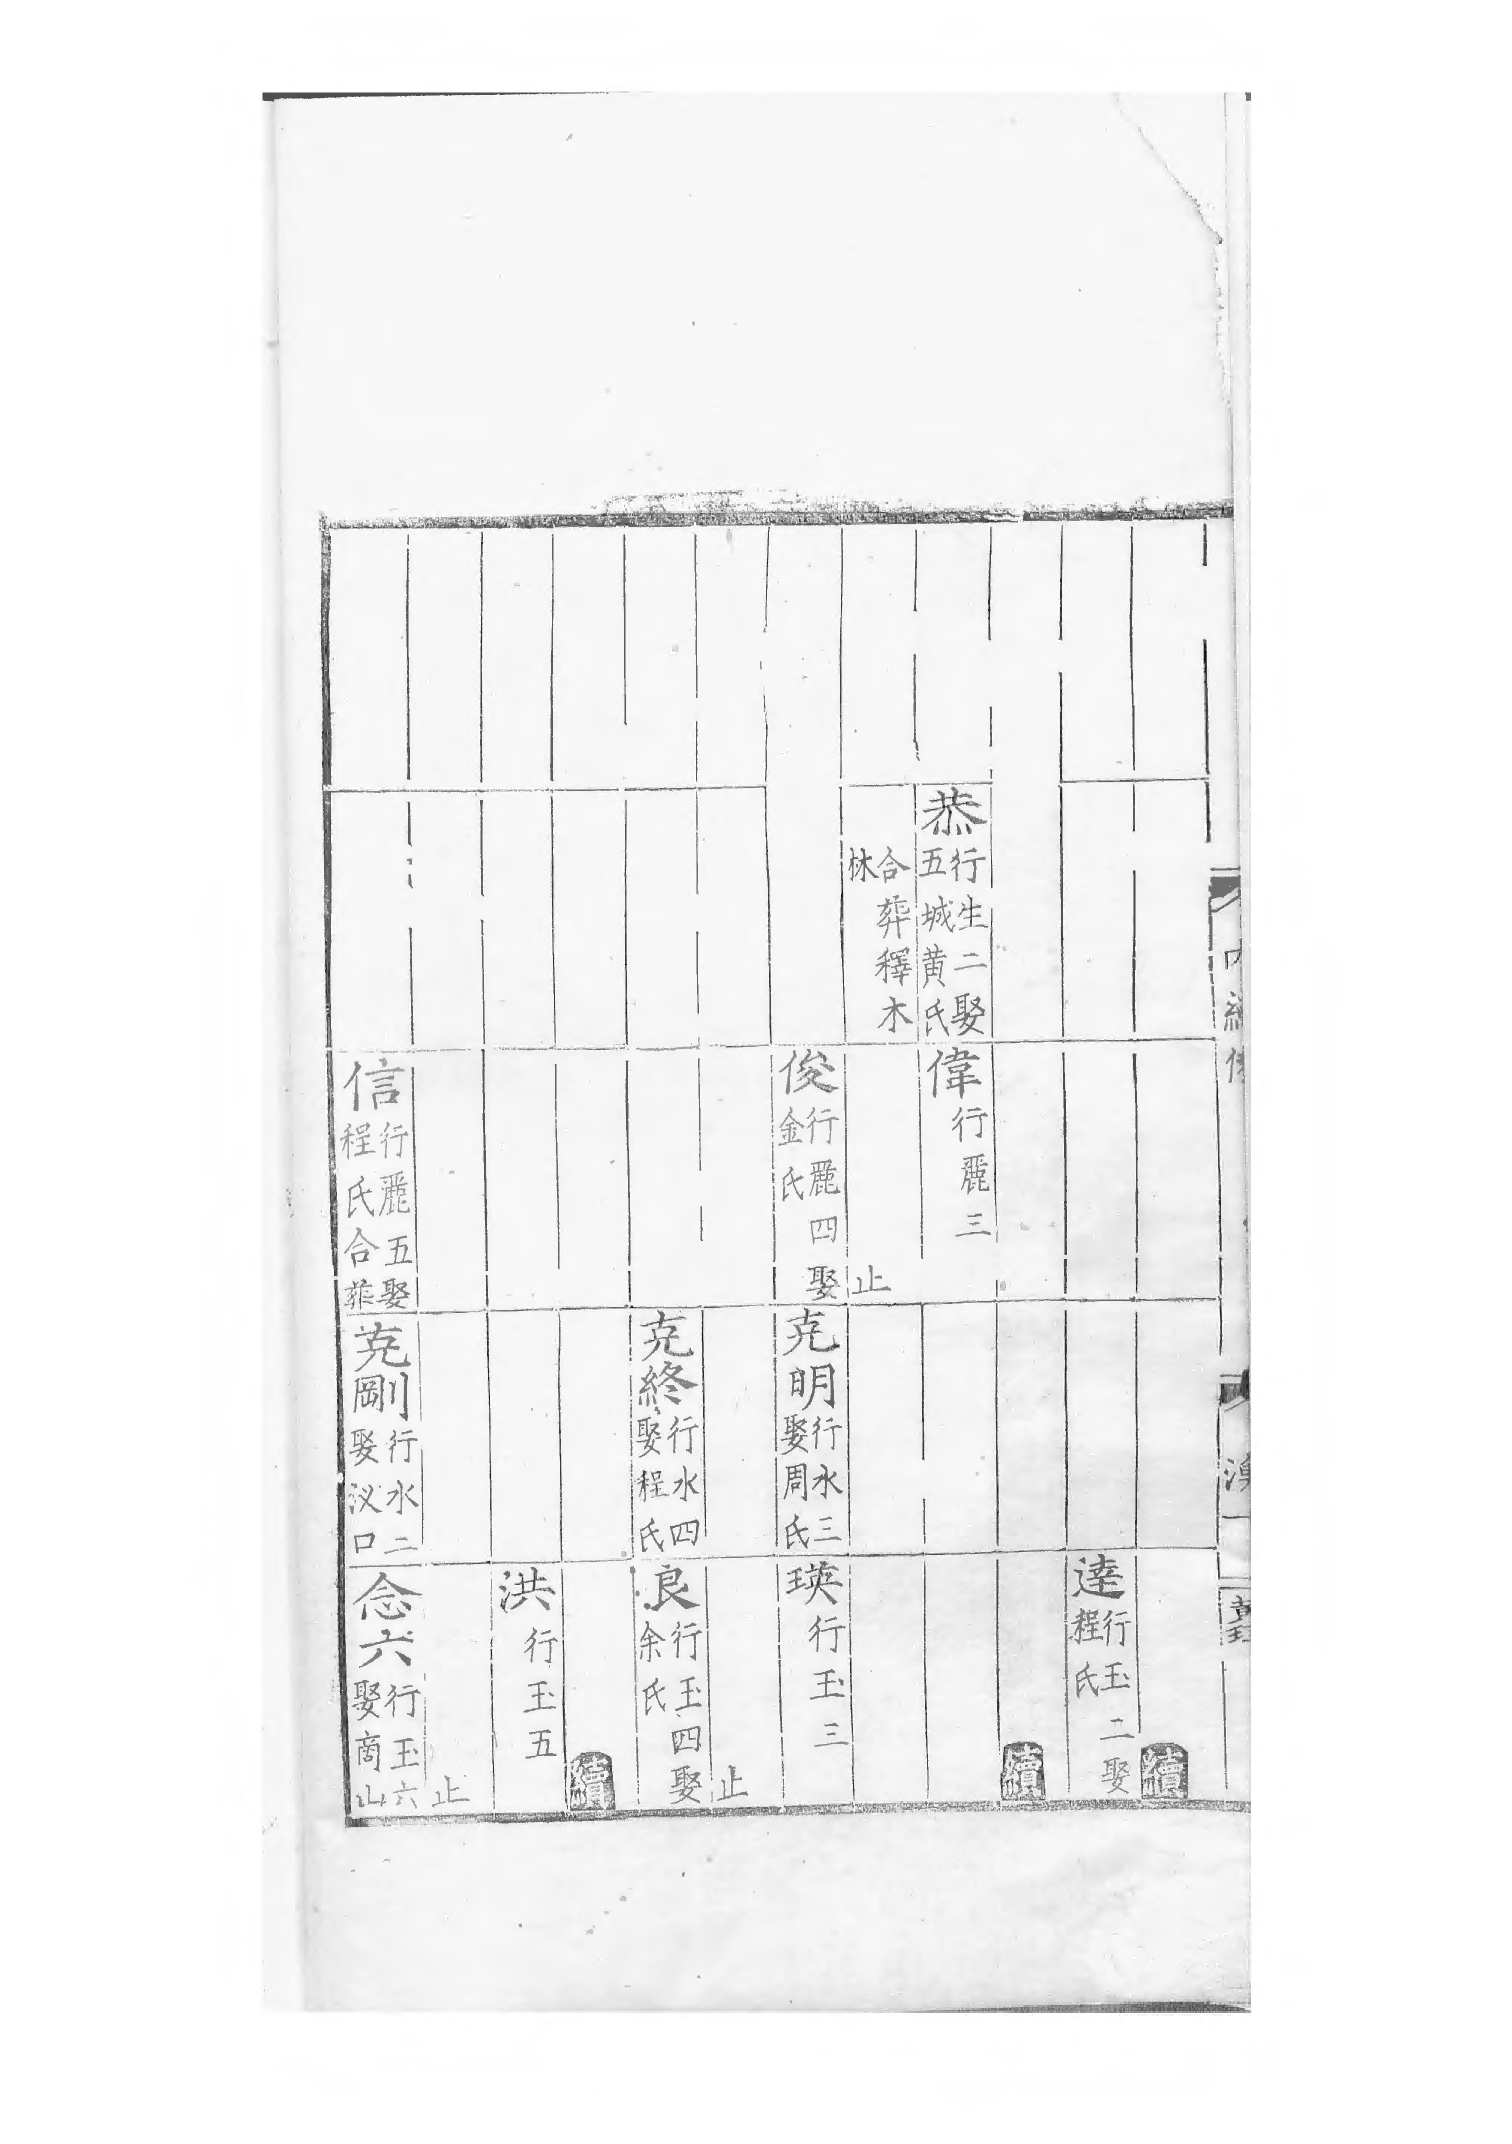 恭
行生二娶
五城黄氏
合葬釋木
林
偉
行麗三
止
俊
行麗四娶
金氏
信
行麗五娶
程氏合葬
克明
行水三
娶周氏
克終
行水四
娶程氏
克剛
行水二
娶汊口
續
達
行玉二娶
程氏
續
瑛
行玉三
止
良
行玉四娶
余氏
續
洪
行玉五
止
念六
行玉六
娶商山